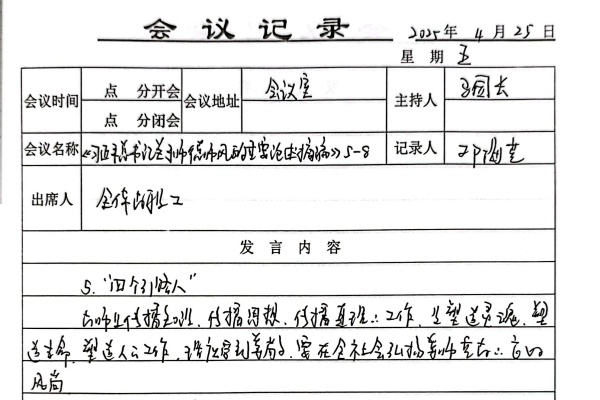 会议记录
2025年4月25日
星期五
会议时间 点 分开会 会议地址 会议室 主持人 园长
点 分闭会
会议名称 《习近平总书记关于师德师风的重要论述摘编》5-8 记录人
出席人 全体教职工
发言内容
5.“四个引路人”
教师是传播知识、传播思想、传播真理的工作,是塑造灵魂、塑
造生命、塑造人的工作,要在全社会弘扬尊师重教的
风尚